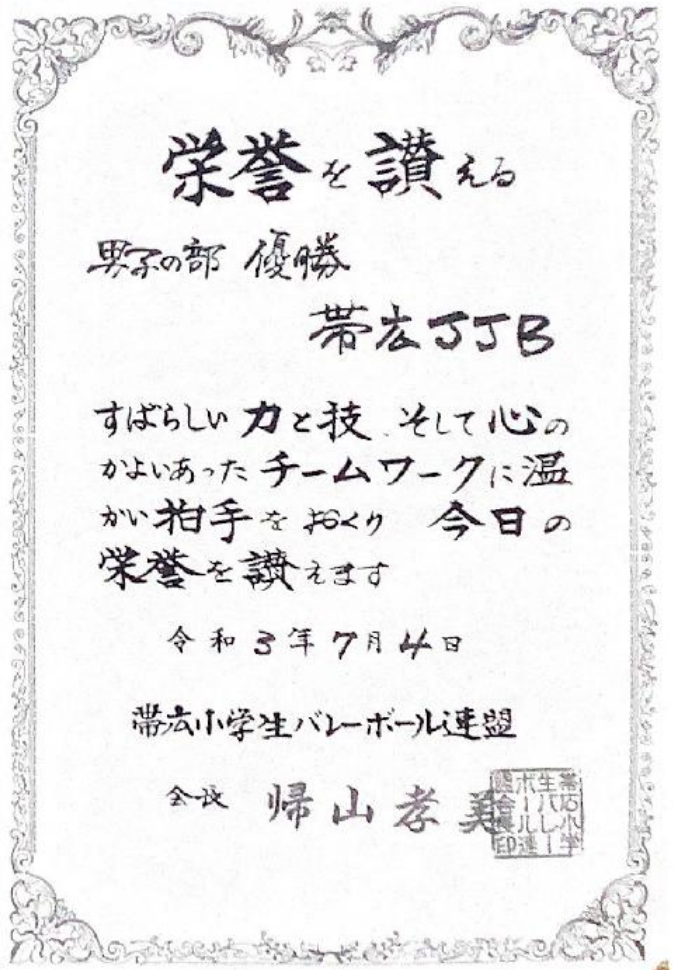 栄誉を讃える
男子の部 優勝
帯広JJB
すばらしい力と技、そして心の
かよいあったチームワークに温
かい拍手をおくり 今日の
栄誉を讃えます
令和3年7月4日
帯広小学生バレーボール連盟
会長 帰山孝美
帯広小学
生バレー
ボール連
盟会長印